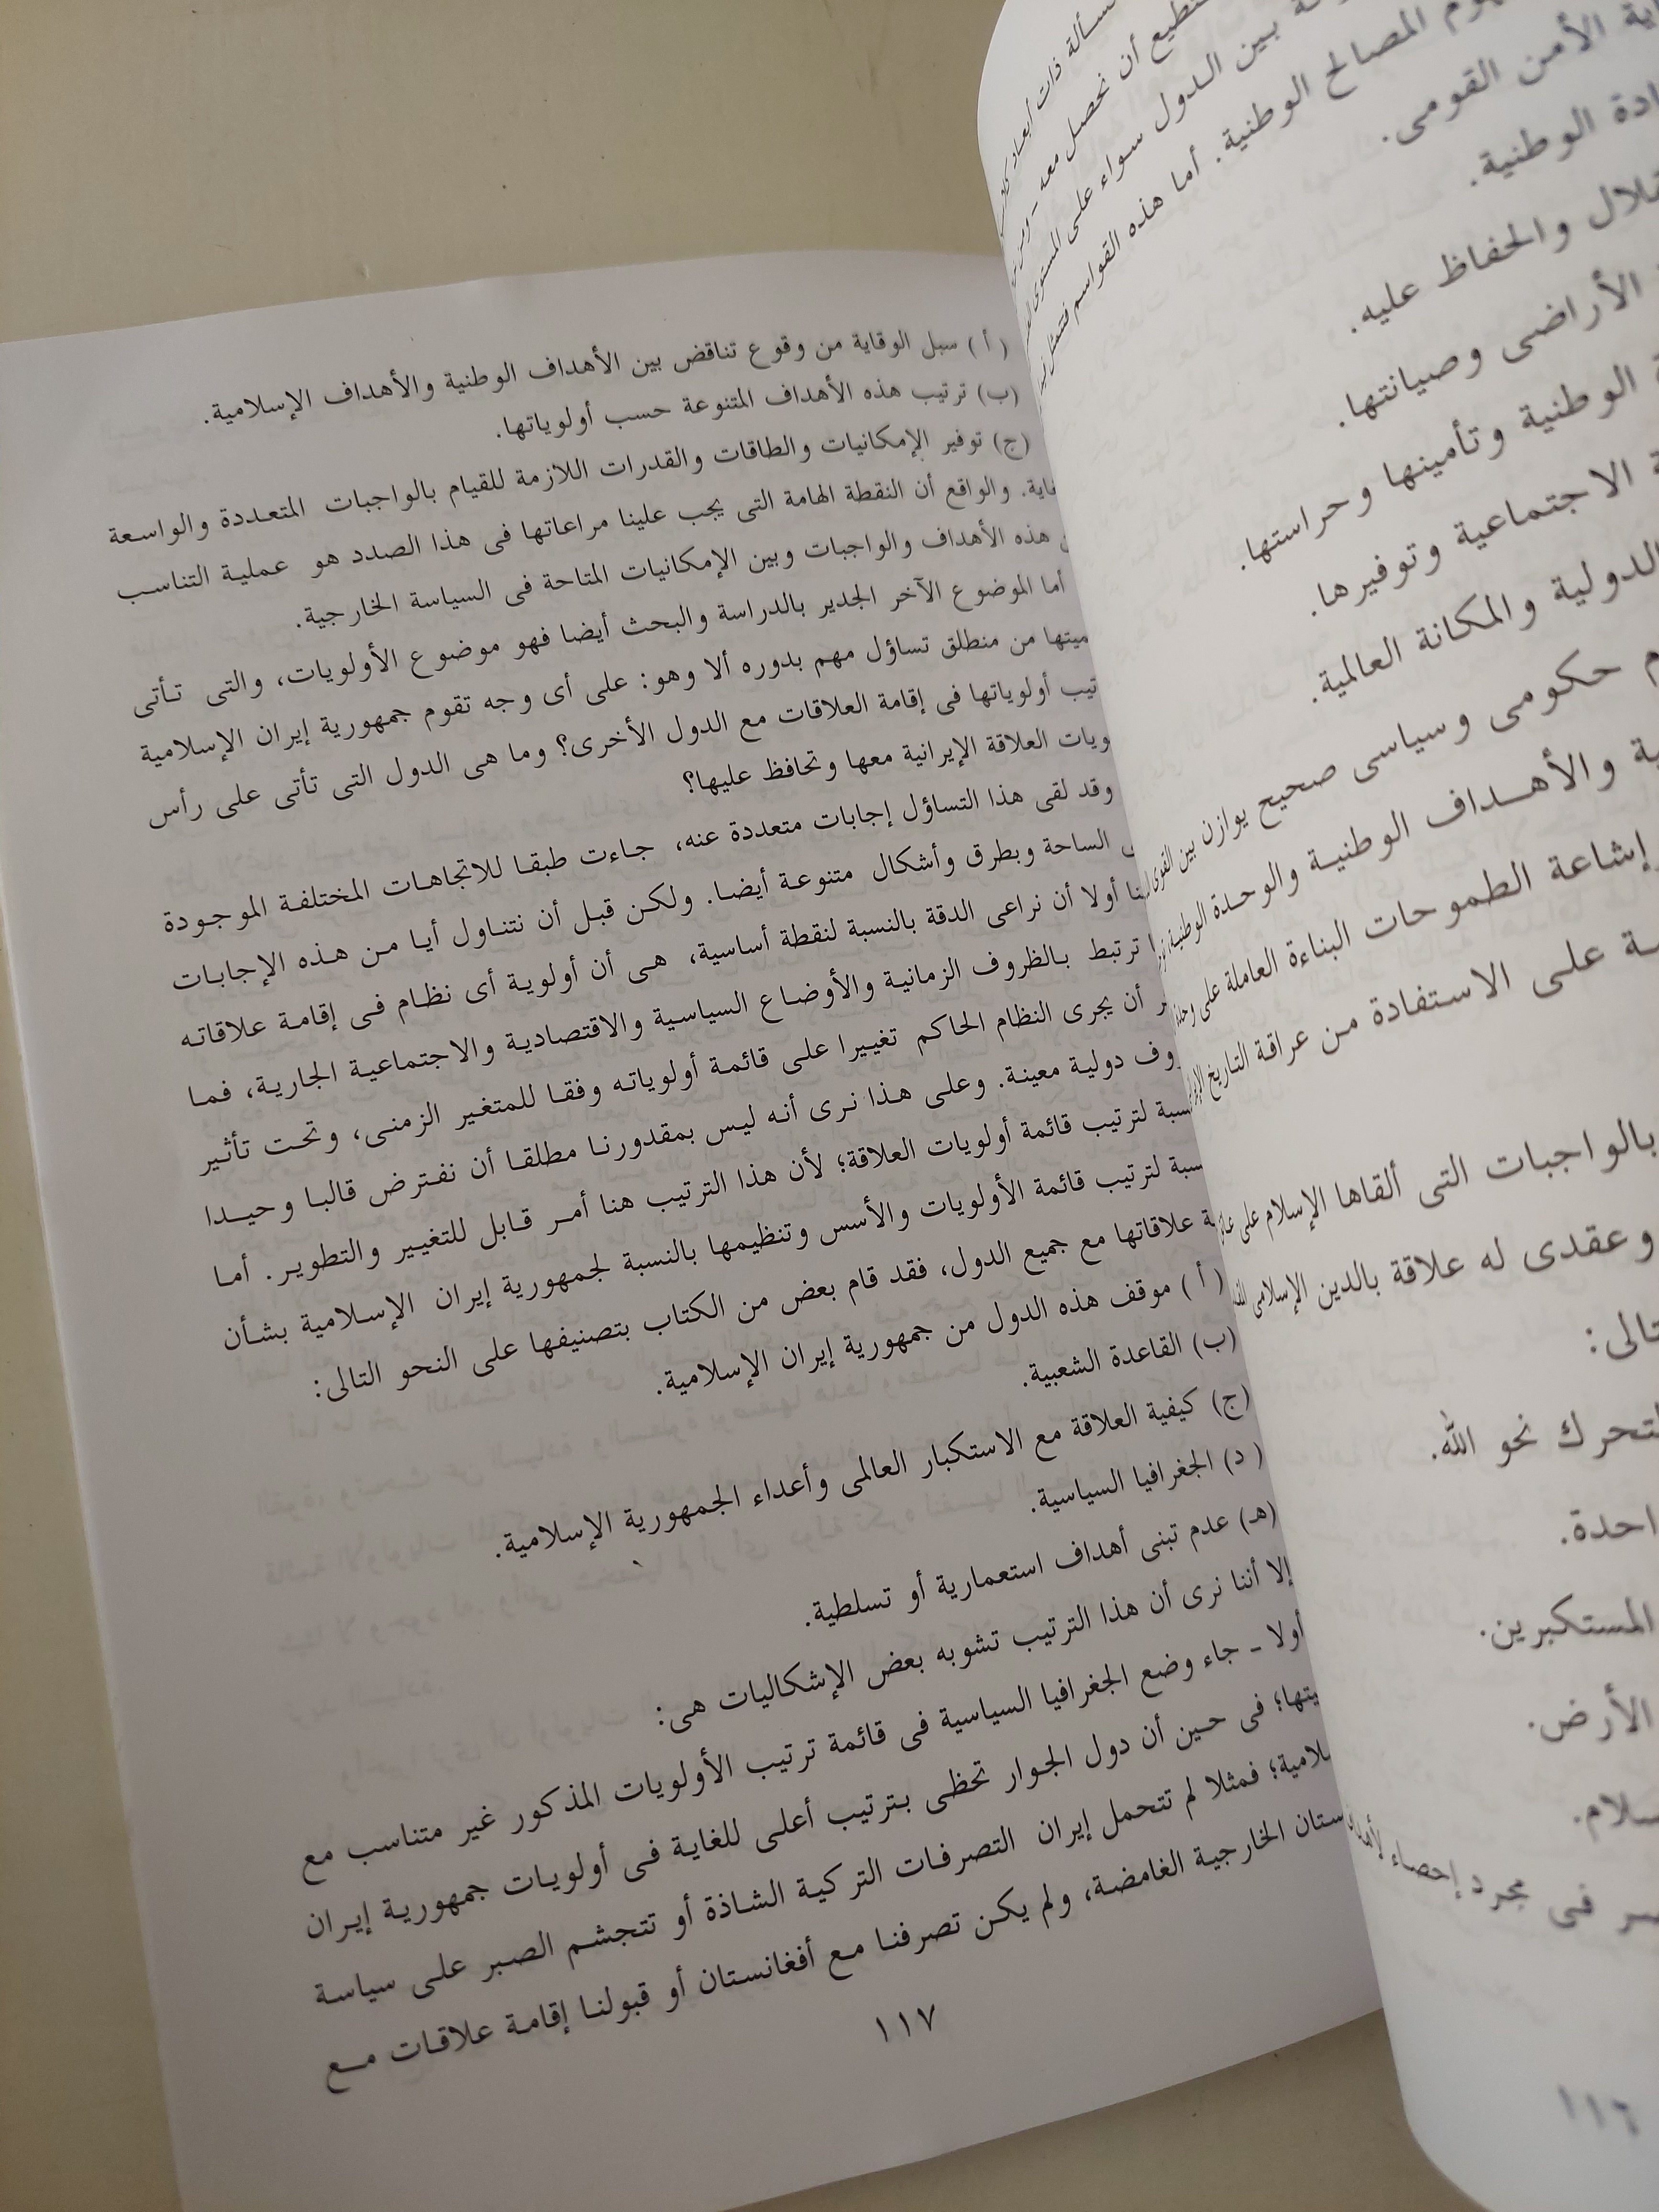 مسألة ذات أبعاد
نستطيع أن نحصل معه
بين الدول سواء على المستوى
المصالح الوطنية. أما هذه القواسم فتتمثل
الأمن القومى.
الوطنية.
والحفاظ عليه.
الأراضى وصيانتها.
الوطنية وتأمينها وحراستها.
الاجتماعية وتوفيرها.
الدولية والمكانة العالمية.
حكومى وسياسى صحيح يوازن بين القوى
والأهداف الوطنية والوحدة الوطنية
إشاعة الطموحات البناءة العاملة على
على الاستفادة من عراقة التاريخ
بالواجبات التى ألقاها الإسلام على
وعقدى له علاقة بالدين الإسلامى
نحو الله.
المستكبرين.
الأرض.
فى مجرد إحصاء
١١٦
( أ ) سبل الوقاية من وقوع تناقض بين الأهداف الوطنية والأهداف الإسلامية.
(ب) ترتيب هذه الأهداف المتنوعة حسب أولوياتها.
(ج) توفير الإمكانيات والطاقات والقدرات اللازمة للقيام بالواجبات المتعددة والواسعة
والواقع أن النقطة الهامة التى يجب علينا مراعاتها فى هذا الصدد هو عملية التناسب
هذه الأهداف والواجبات وبين الإمكانيات المتاحة فى السياسة الخارجية.
أما الموضوع الآخر الجدير بالدراسة والبحث أيضا فهو موضوع الأولويات، والتى تأتى
من منطلق تساؤل مهم بدوره ألا وهو: على أى وجه تقوم جمهورية إيران الإسلامية
أولوياتها فى إقامة العلاقات مع الدول الأخرى؟ وما هى الدول التى تأتى على رأس
العلاقة الإيرانية معها وتحافظ عليها؟
وقد لقى هذا التساؤل إجابات متعددة عنه، جاءت طبقا للاتجاهات المختلفة الموجودة
الساحة وبطرق وأشكال متنوعة أيضا. ولكن قبل أن نتناول أيا من هذه الإجابات
أولا أن نراعى الدقة بالنسبة لنقطة أساسية، هى أن أولوية أى نظام فى إقامة علاقاته
ترتبط بالظروف الزمانية والأوضاع السياسية والاقتصادية والاجتماعية الجارية، فما
أن يجرى النظام الحاكم تغييرا على قائمة أولوياته وفقا للمتغير الزمنى، وتحت تأثير
دولية معينة. وعلى هذا نرى أنه ليس بمقدورنا مطلقا أن نفترض قالبا وحيدا
لترتيب قائمة أولويات العلاقة؛ لأن هذا الترتيب هنا أمر قابل للتغيير والتطوير. أما
لترتيب قائمة الأولويات والأسس وتنظيمها بالنسبة لجمهورية إيران الإسلامية بشأن
علاقاتها مع جميع الدول، فقد قام بعض من الكتاب بتصنيفها على النحو التالى:
( أ ) موقف هذه الدول من جمهورية إيران الإسلامية.
(ب) القاعدة الشعبية.
(ج) كيفية العلاقة مع الاستكبار العالمى وأعداء الجمهورية الإسلامية.
( د) الجغرافيا السياسية.
(هـ) عدم تبنى أهداف استعمارية أو تسلطية.
إلا أننا نرى أن هذا الترتيب تشوبه بعض الإشكاليات هى:
أولا ـ جاء وضع الجغرافيا السياسية فى قائمة ترتيب الأولويات المذكور غير متناسب مع
فى حين أن دول الجوار تحظى بترتيب أعلى للغاية فى أولويات جمهورية إيران
فمثلا لم تتحمل إيران التصرفات التركية الشاذة أو تتجشم الصبر على سياسة
الخارجية الغامضة، ولم يكن تصرفنا مع أفغانستان أو قبولنا إقامة علاقات مع
١١٧